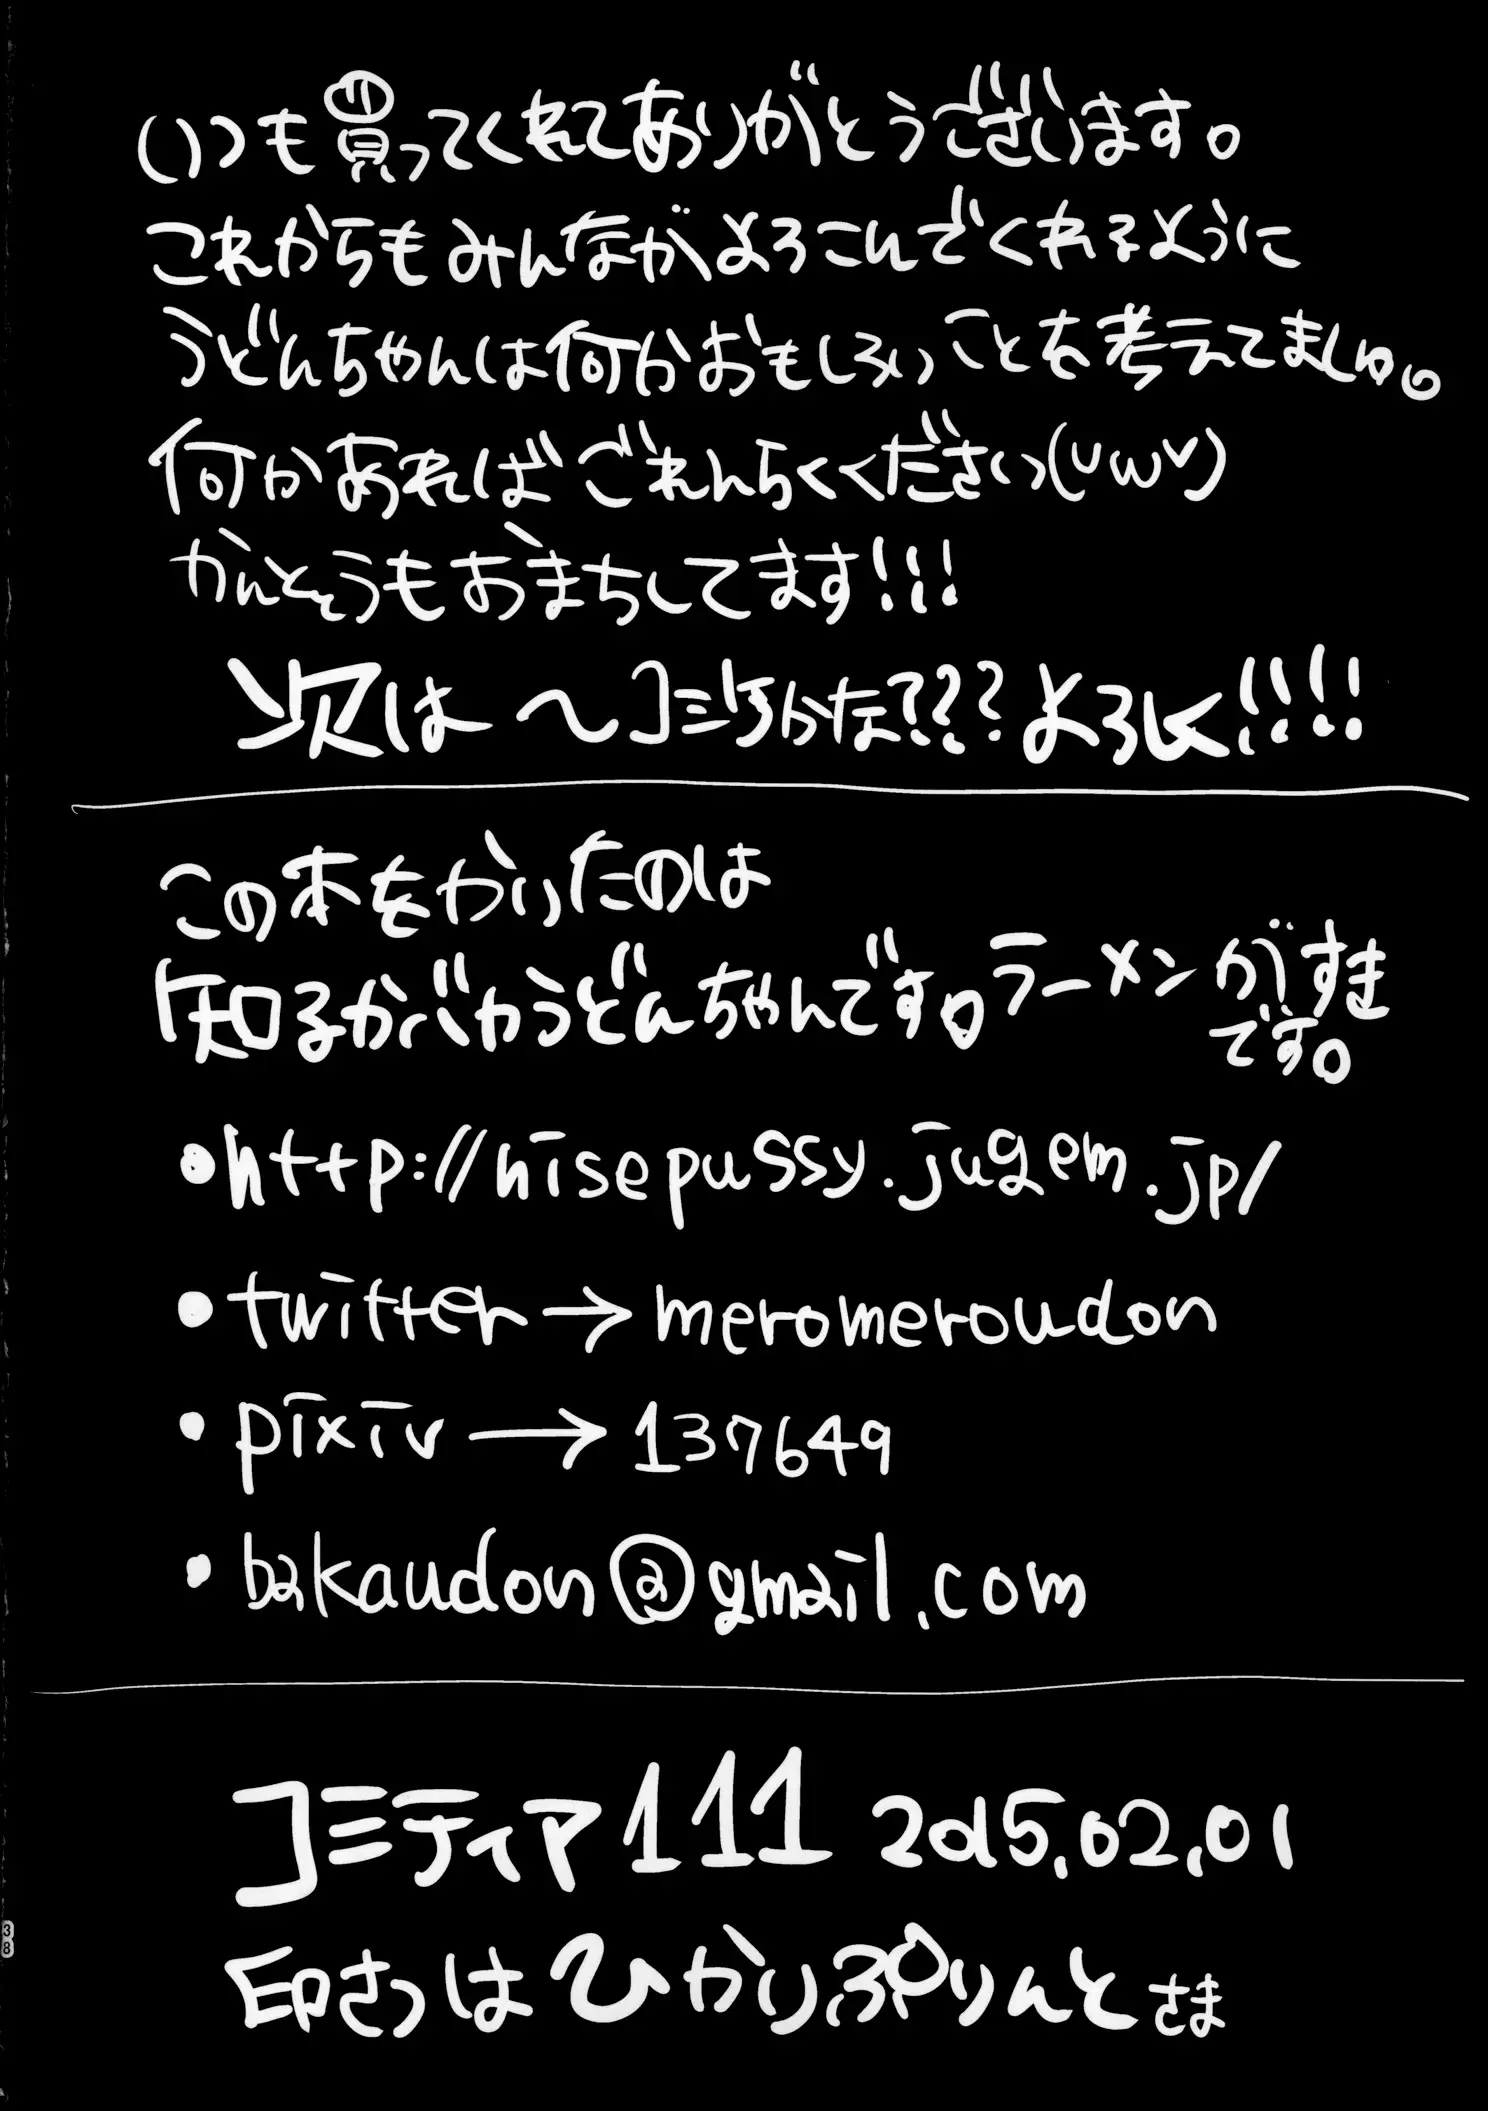 いつも買ってくれてありがとうございます。
これからもみんながよろこんでくれるように
うどんちゃんは何かおもしろいことを考えてましゅ。
何かあればごれんらくください(UωV)
かんとうもおまちしてます!!!
次は〜コミ1かな???よろしく!!!!
この本をかいたのは
知るかバカうどんちゃんです。ラーメンがすき
です。
・http://hisepussy.jugem.jp/
・twitter→meromeroudon
・pixiv→137649
・bakaudon@gmail.com
コミティア111 2015.02.01
印さつはひかりぷりんとさま
38